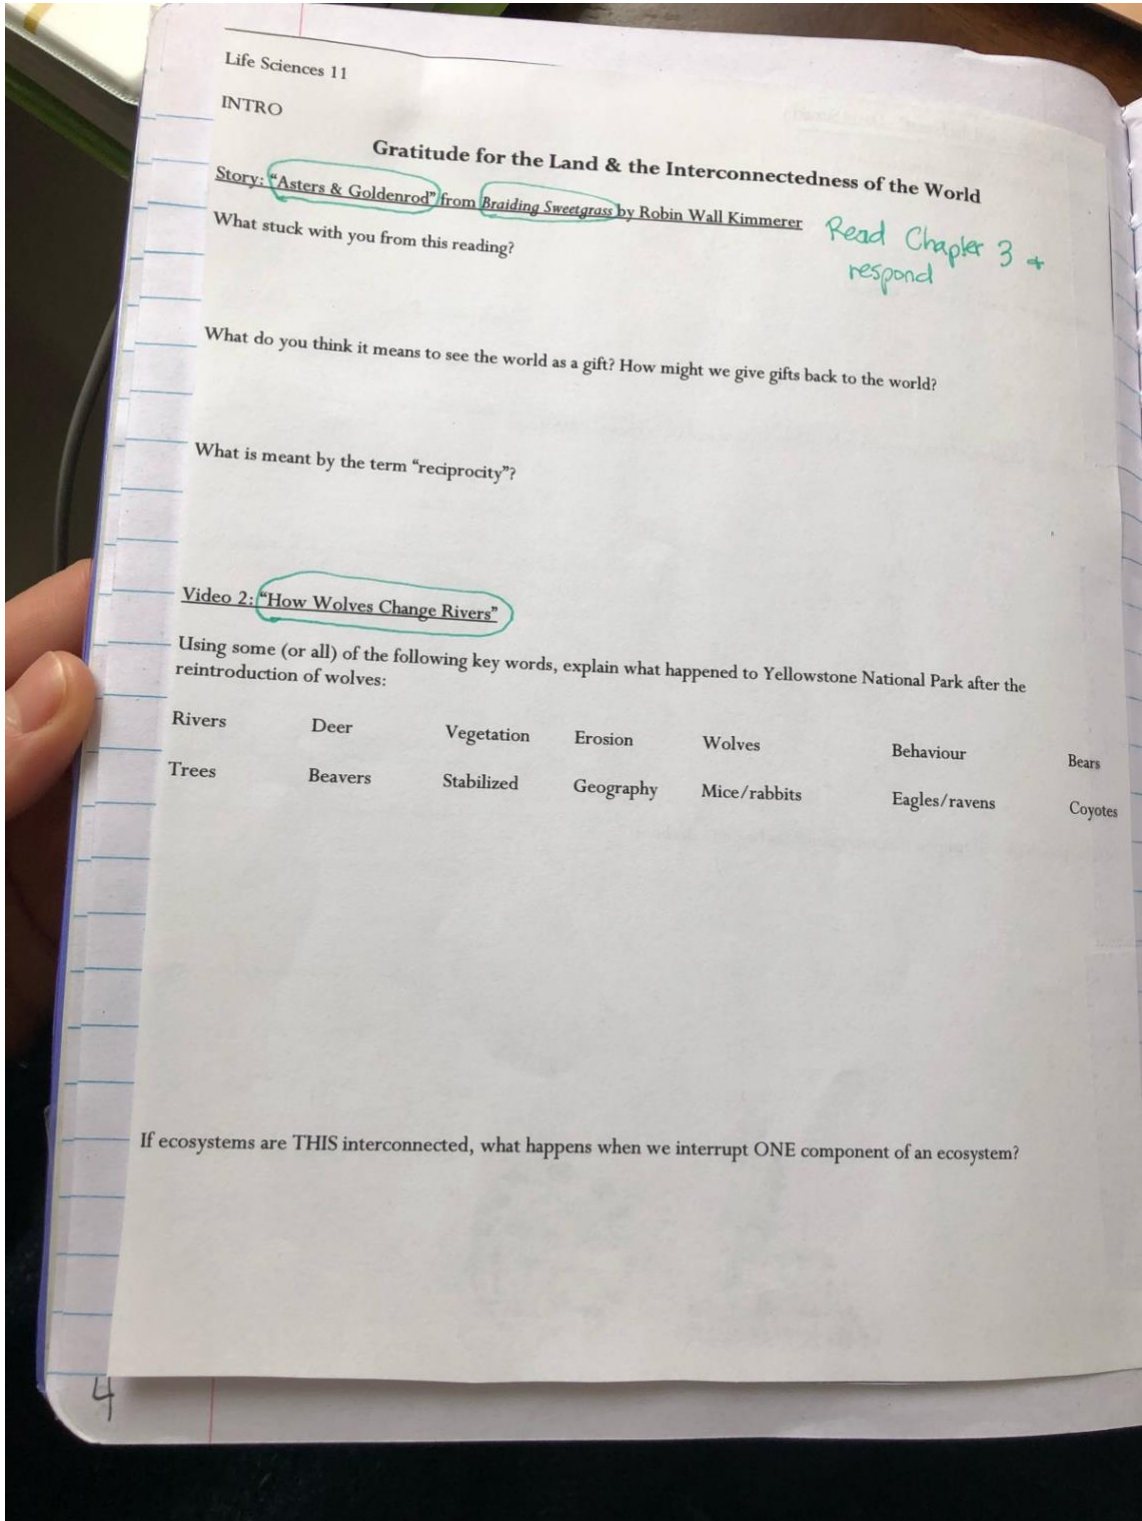 Life Sciences 11
INTRO
Gratitude for the Land & the Interconnectedness of the World
Story: "Asters & Goldenrod" from Braiding Sweetgrass by Robin Wall Kimmerer
Read Chapter 3 +
respond
What stuck with you from this reading?
What do you think it means to see the world as a gift? How might we give gifts back to the world?
What is meant by the term "reciprocity"?
Video 2: "How Wolves Change Rivers"
Using some (or all) of the following key words, explain what happened to Yellowstone National Park after the
reintroduction of wolves:
Rivers Deer Vegetation Erosion Wolves Behaviour Bears
Trees Beavers Stabilized Geography Mice/rabbits Eagles/ravens Coyotes
If ecosystems are THIS interconnected, what happens when we interrupt ONE component of an ecosystem?
4